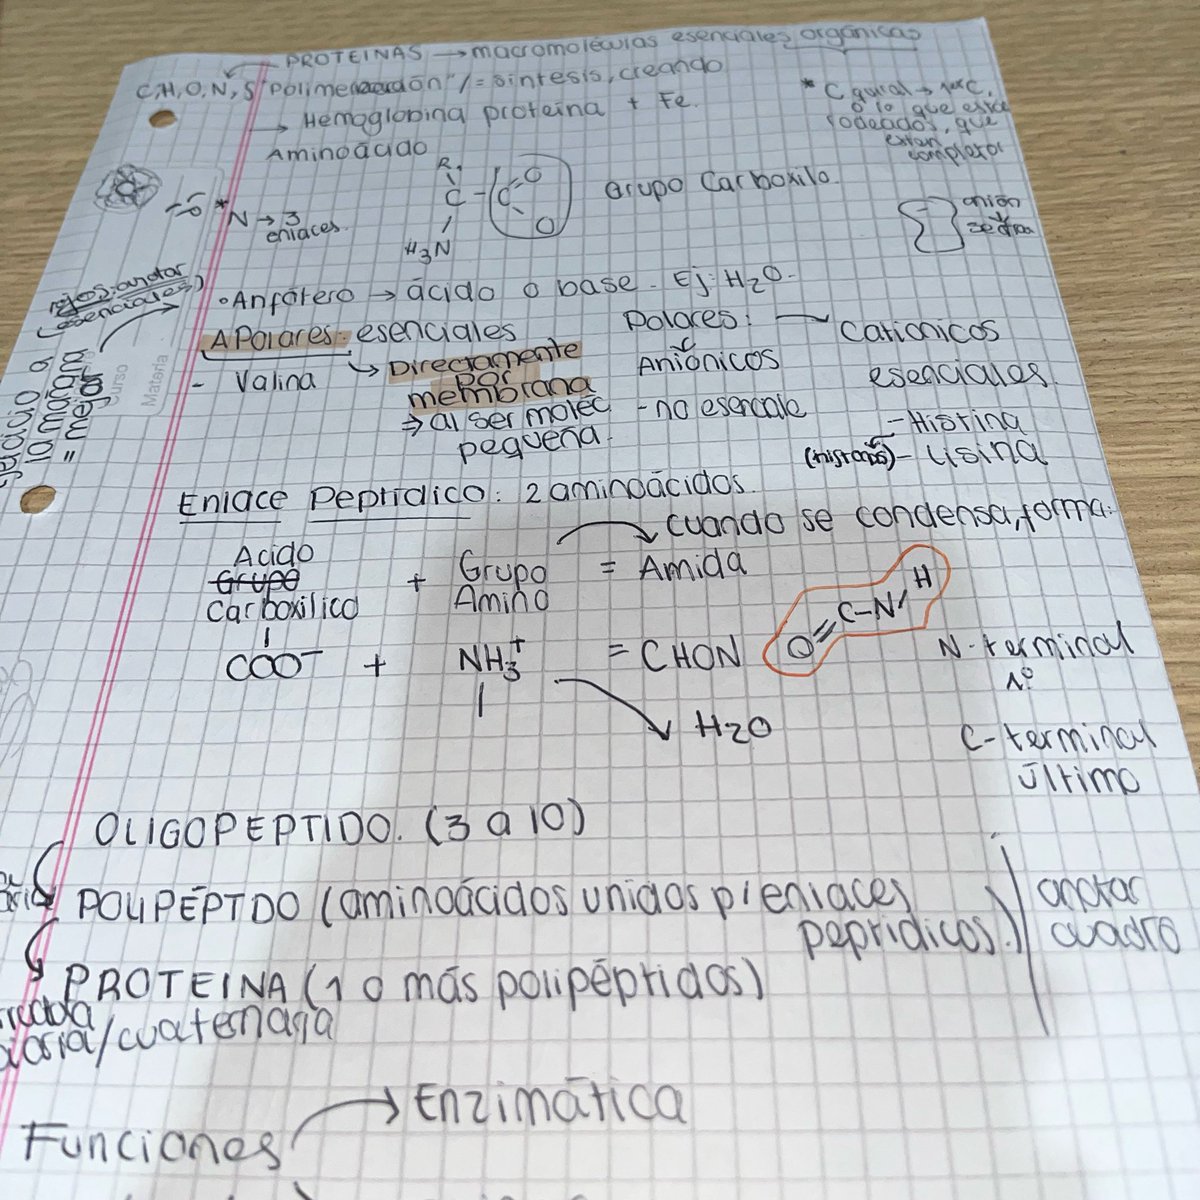 PROTEINAS → macromoléculas esenciales orgánicas
C,H,O,N,S "Polimerización"/= síntesis, creando
→ Hemoglobina proteína + Fe.
* C quiral →
o lo que este
rodeados, que
esten
completos
Aminoácido
R,
C - C = O
O
H3N
Grupo Carboxilo.
* N → 3
enlaces.
anión
zedtra
• Anfótero → ácido o base. Ej: H2O.
anotar
(esenciales)
ejercicio a
la mañana
= mejor
Curso
Materia
APolares: esenciales
- Valina
→ Directamente
por
membrana
⇒ al ser molec
pequeña.
Polares: →
Aniónicos
- no esencale
Cationicos
esenciales.
- Histina
- Lisina
Enlace Peptidico: 2 aminoácidos.
→ cuando se condensa, forma:
Acido
Grupo
Carboxilico
+ Grupo
Amino
= Amida
O=C-N/H
COO⁻ + NH3⁺ = CHON
→ H2O
N-terminal
1º
C-terminal
último
OLIGOPEPTIDO. (3 a 10)
POLIPÉPTDO (aminoácidos unidos p/ enlaces
peptidicos.)
anotar
cuadro
PROTEINA (1 o más polipéptidos)
/cuaternaria
Funciones → Enzimática